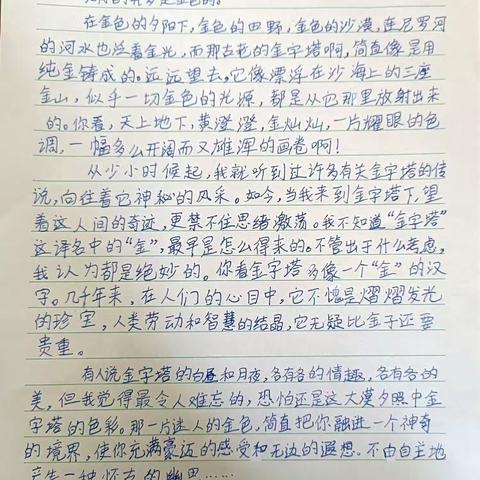 在金色的夕阳下,金色的田野,金色的沙漠,连尼罗河
的河水也泛着金光,而那古老的金字塔啊,简直像是用
纯金铸成的。远远望去,它像漂浮在沙海上的三座
金山,似乎一切金色的光源,都是从它那里放射出来
的。你看,天上地下,黄澄澄,金灿灿,一片耀眼的色
调,一幅多么开阔而又雄浑的画卷啊!
从少小时候起,我就听到过许多有关金字塔的传
说,向往着它神秘的风采。如今,当我来到金字塔下,望
着这人间的奇迹,更禁不住思绪激荡。我不知道“金字塔”
这译名中的“金”,最早是怎么得来的。不管出于什么考虑,
我认为都是绝妙的。你看金字塔多像一个“金”的汉
字。几千年来,在人们的心目中,它不愧是熠熠发光
的珍宝,人类劳动和智慧的结晶,它无疑比金子还要
贵重。
有人说金字塔的白昼和月夜,各有各的情趣,各有各的
美,但我觉得最令人难忘的,恐怕还是这大漠夕照中金
字塔的色彩。那一片迷人的金色,简直把你融进一个神奇
的境界,使你充满豪迈的感受和无边的遐想。不由自主地
产生一种怀古的幽思……